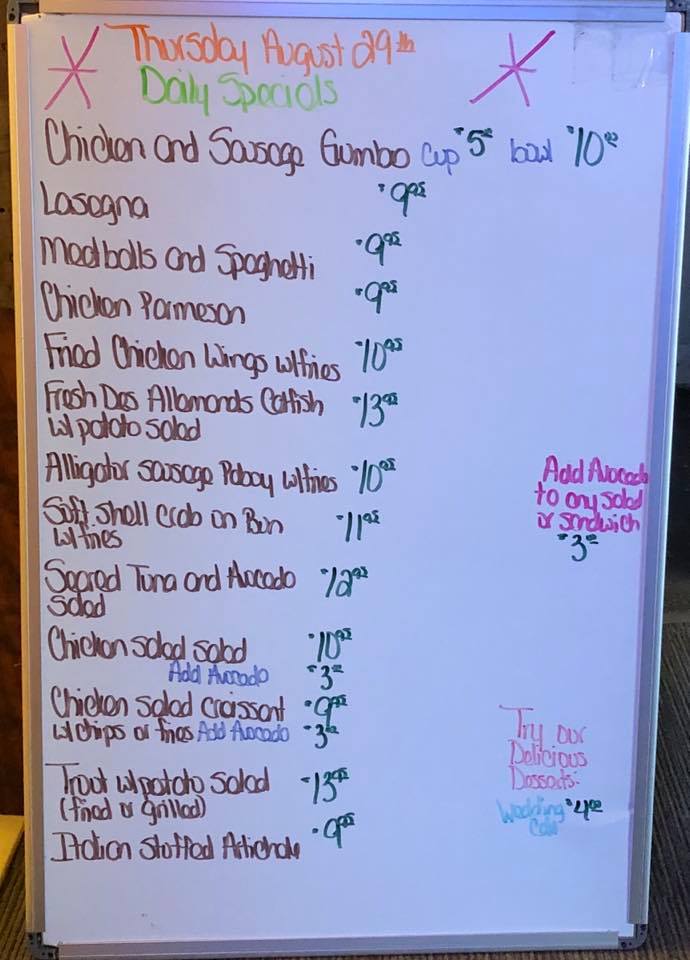 Thursday August 29th
Daily Specials
Chicken and Sausage Gumbo cup $5.00 bowl $10.00
Lasagna $9.95
Meatballs and Spaghetti $9.95
Chicken Parmeson $9.95
Fried Chicken Wings w/fries $10.95
Fresh Des Allemands Catfish $13.95
w/ potato salad
Alligator sausage Poboy w/fries $10.95
Soft shell crab on Bun $11.95
w/fries
Seared Tuna and Avocado $12.95
Salad
Chicken salad salad $10.95
Add Avocado $3.00
Chicken salad croissant $9.95
w/chips or fries Add Avocado $3.00
Trout w/potato salad $13.95
(fried or grilled)
Italian Stuffed Artichoke $9.95
Add Avocado
to any salad
or sandwich
$3.00
Try our
Delicious
Desserts:
Wedding $4.00
Cake